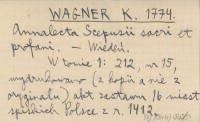 WAGNER K. 1774.
Annalecta Scepusii sacri et
profani. — Wiedeń.
W tomie 1: 212, nr 15,
wydrukowano (z kopii a nie z
oryginału) akt zastawu 16 miast
spiskich Polsce z r. 1412